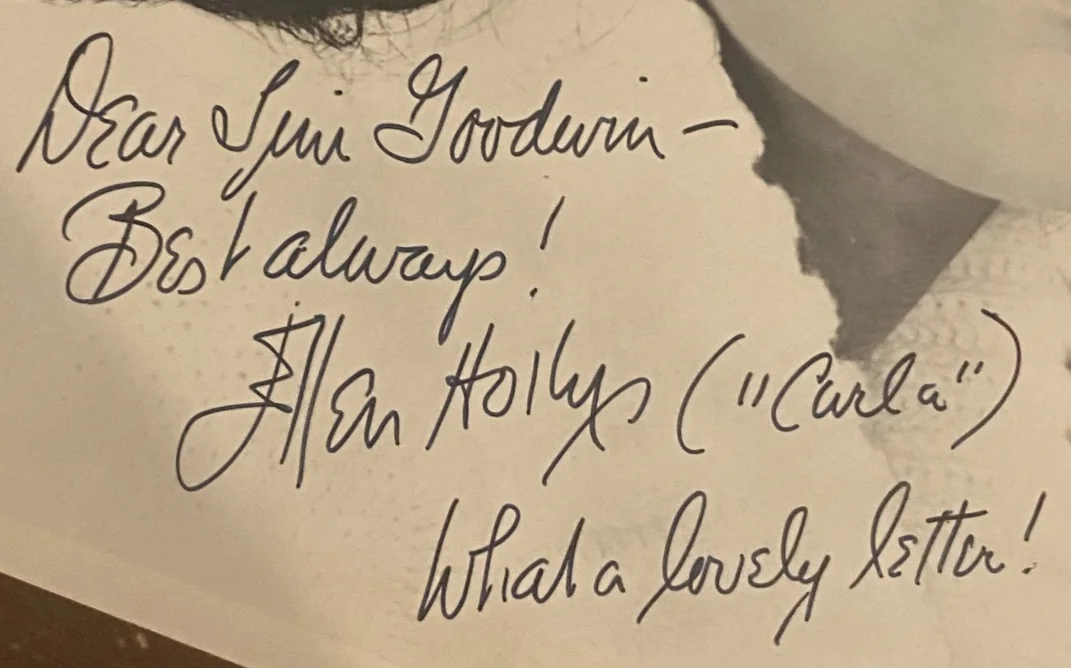 Dear Jim Goodwin —
Best always!
Ellen Holly ("Carla")
What a lovely letter!